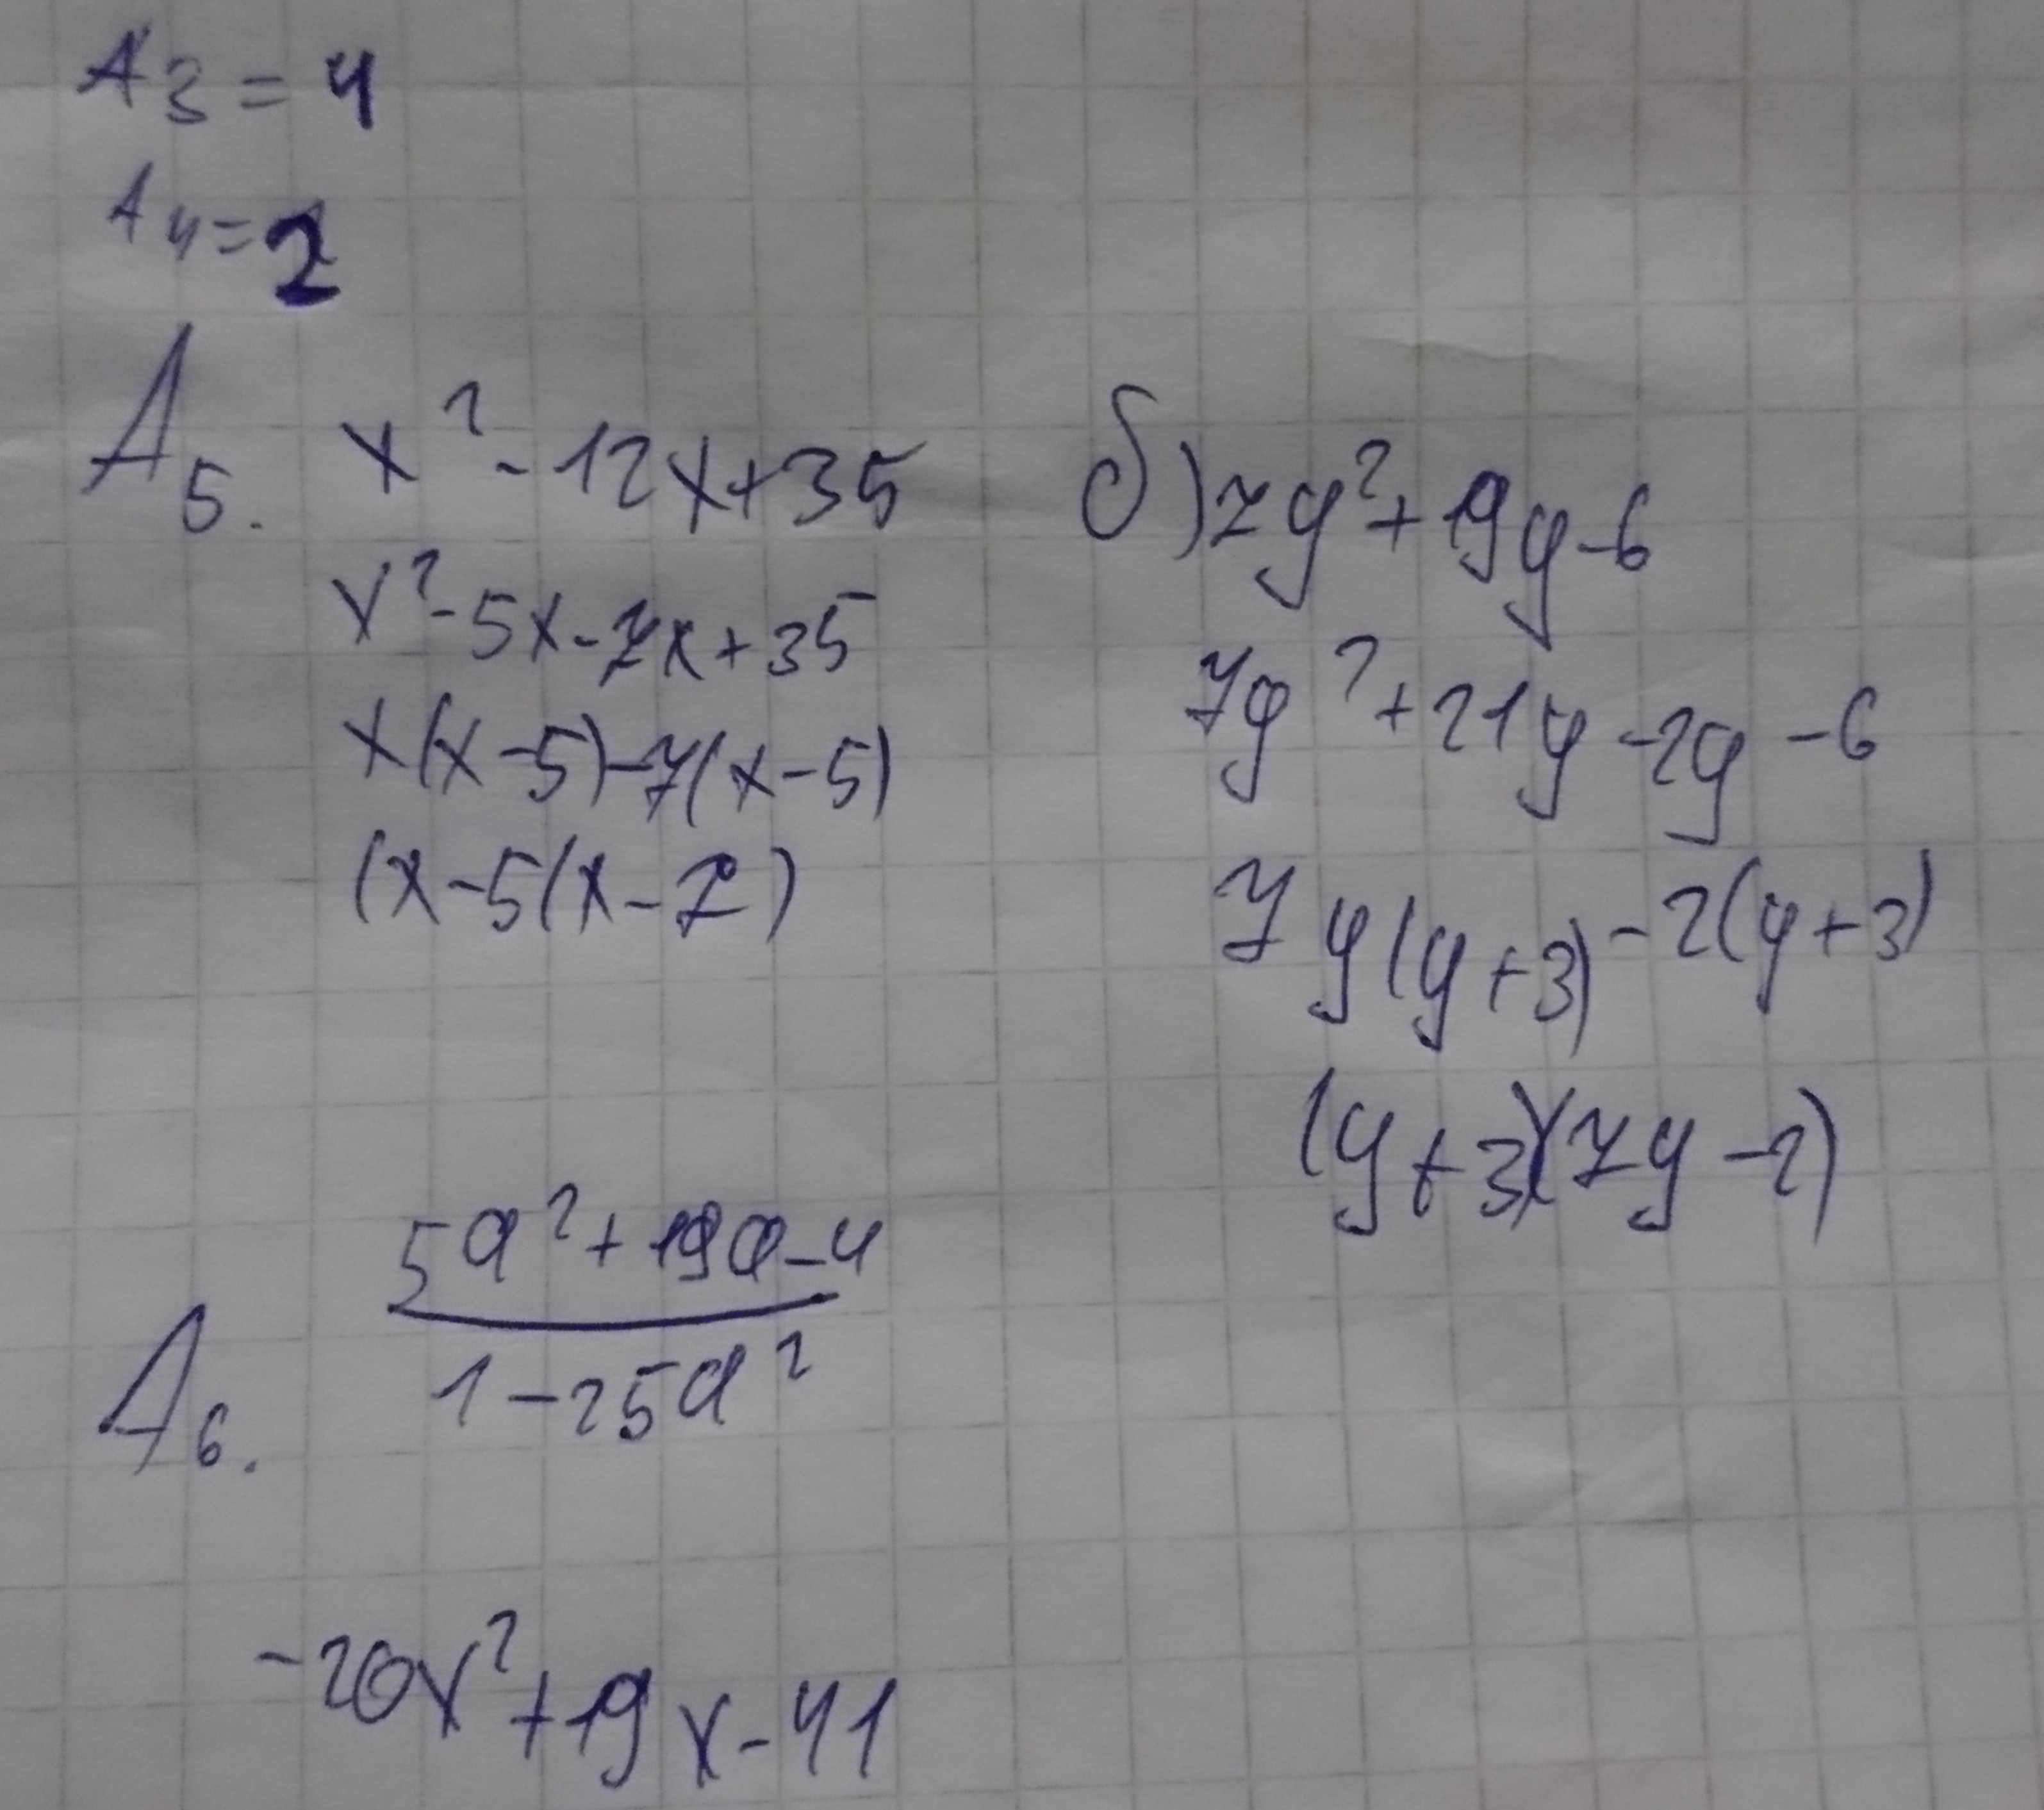 A3 = 4
A4 = 2
A5. x² - 12x + 35
x² - 5x - 7x + 35
x(x - 5) - 7(x - 5)
(x - 5(x - 7)
б) 7y² + 19y - 6
7y² + 21y - 2y - 6
7y(y + 3) - 2(y + 3)
(y + 3)(7y - 2)
5a² + 19a - 4
A6.
1 - 25a²
-20x² + 19x - 41